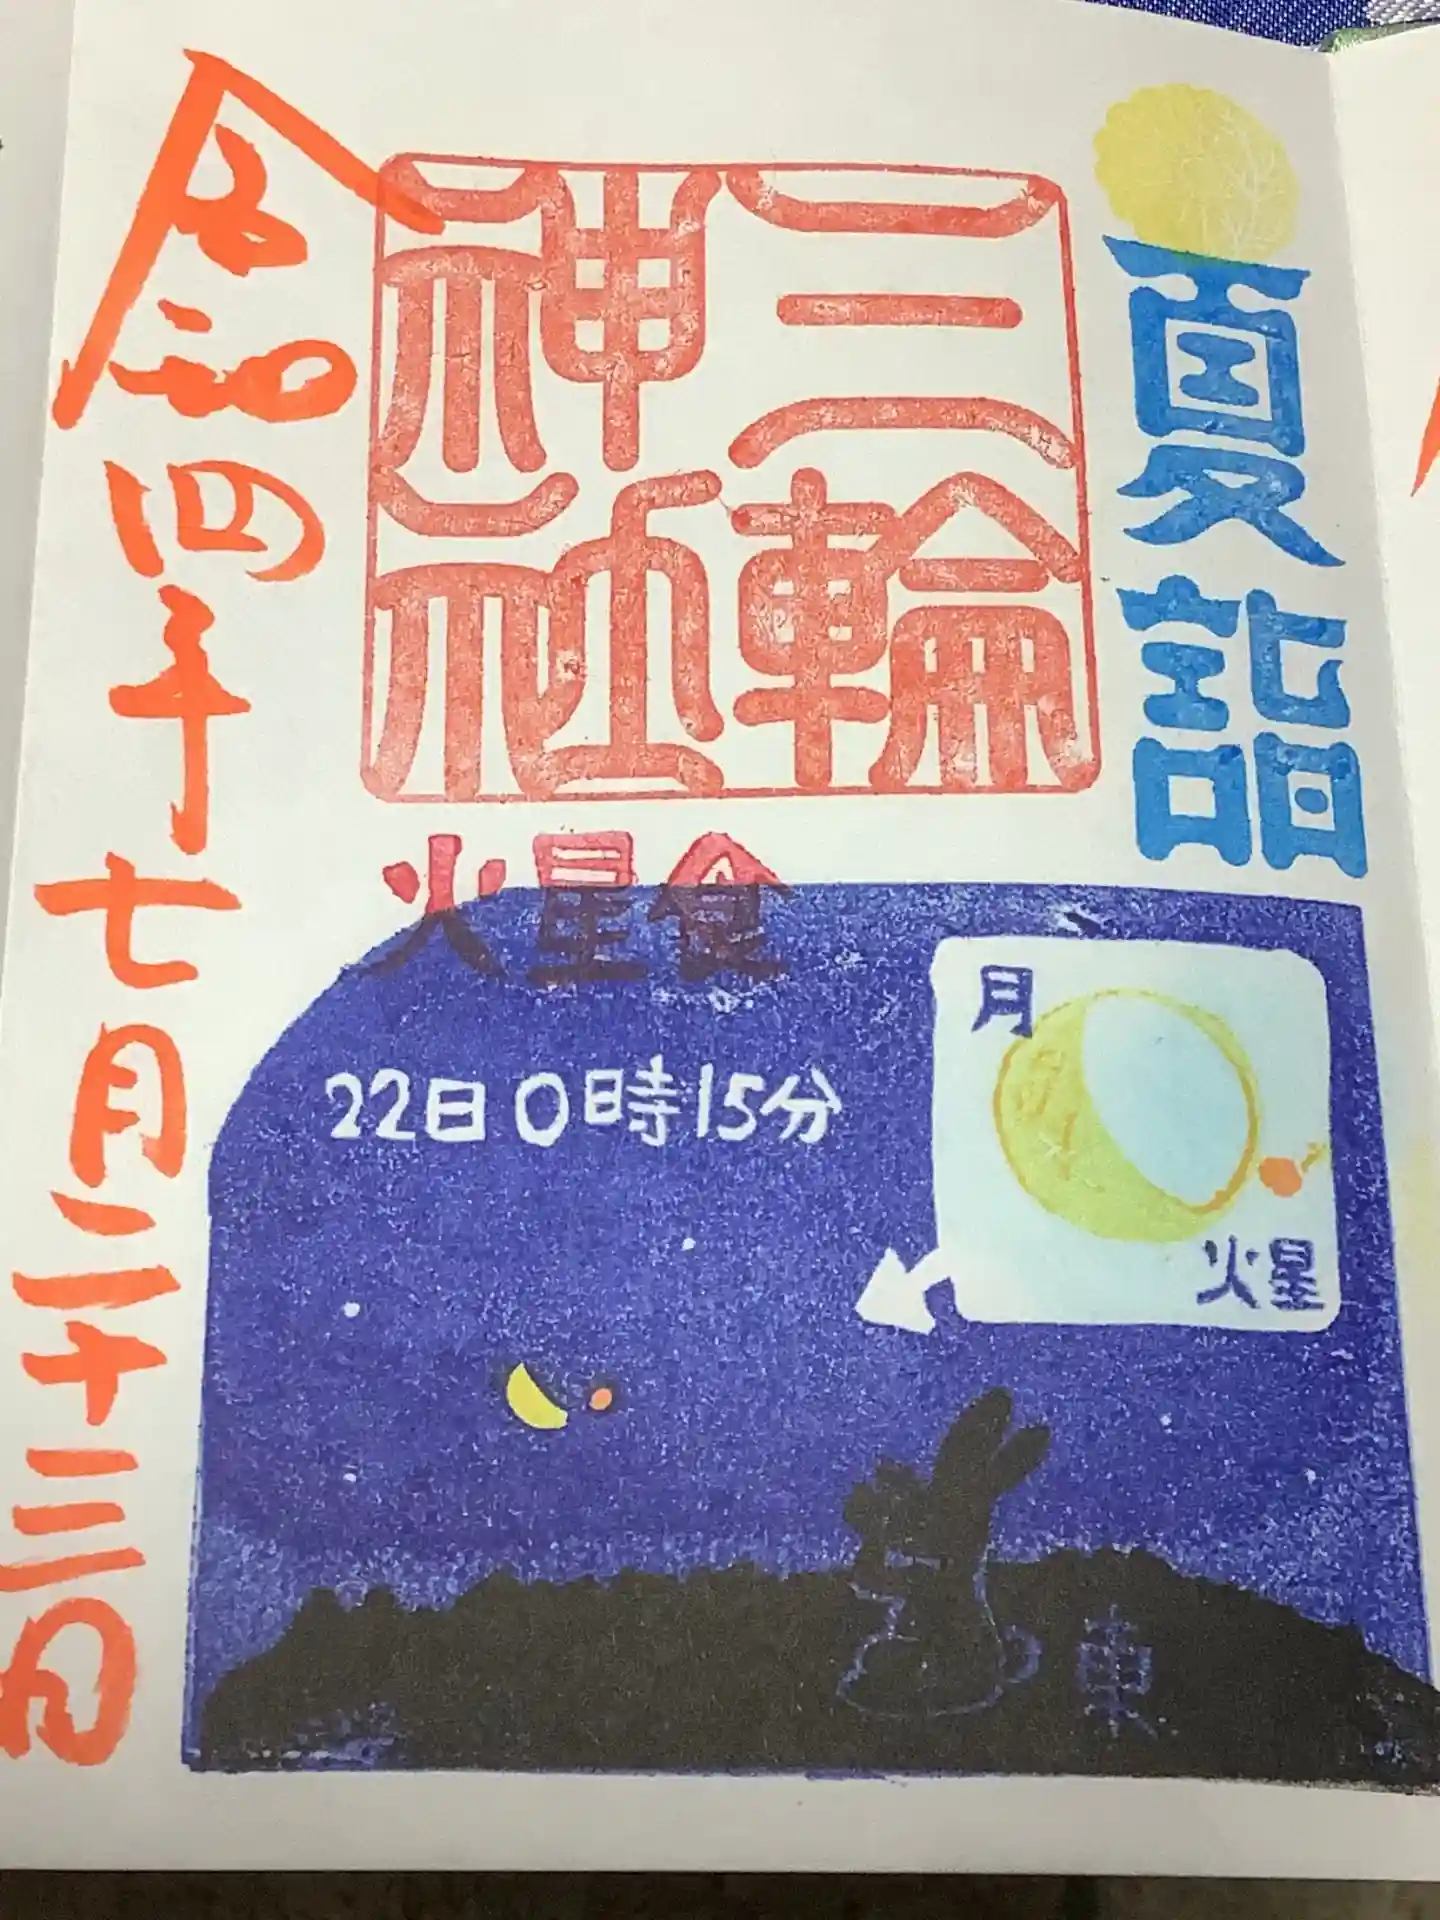 夏詣
三輪
神社
令和四年七月二十三日
火星食
22日0時15分
月
火星
東